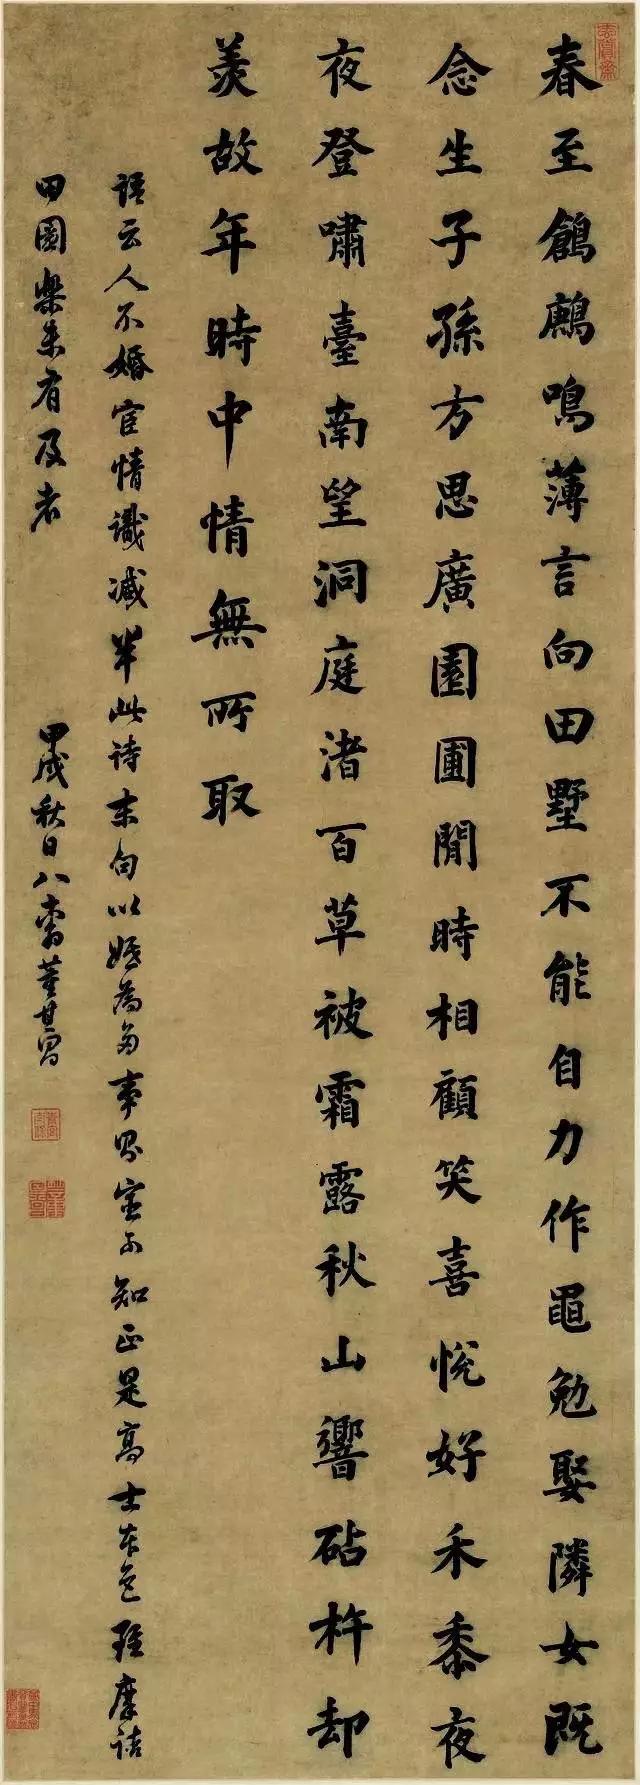 春至鶬鶊鳴薄言向田墅不能自力作黽勉娶隣女既
念生子孫方思廣園圃閒時相顧笑喜悅好禾黍夜
夜登嘯臺南望洞庭渚百草被霜露秋山響砧杵却
羨故年時中情無所取
語云人不婚宦情識減半此詩末句以婚為多事知正是高士本色雖摩詰
田園樂未有及者
甲戌秋日八董其昌
玄賞齋